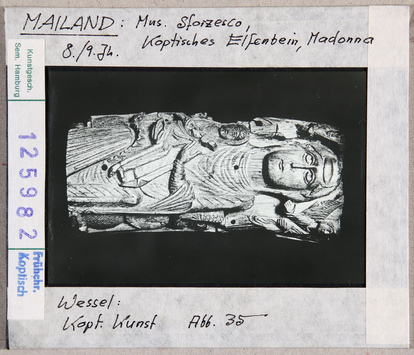 MAILAND: Mus. Sforzesco,
8./9. Jh. Koptisches Elfenbein, Madonna
Kunstgesch.
Sem. Hamburg
125982
Frühchr.
Koptisch
Wessel:
Kopt. Kunst Abb. 35